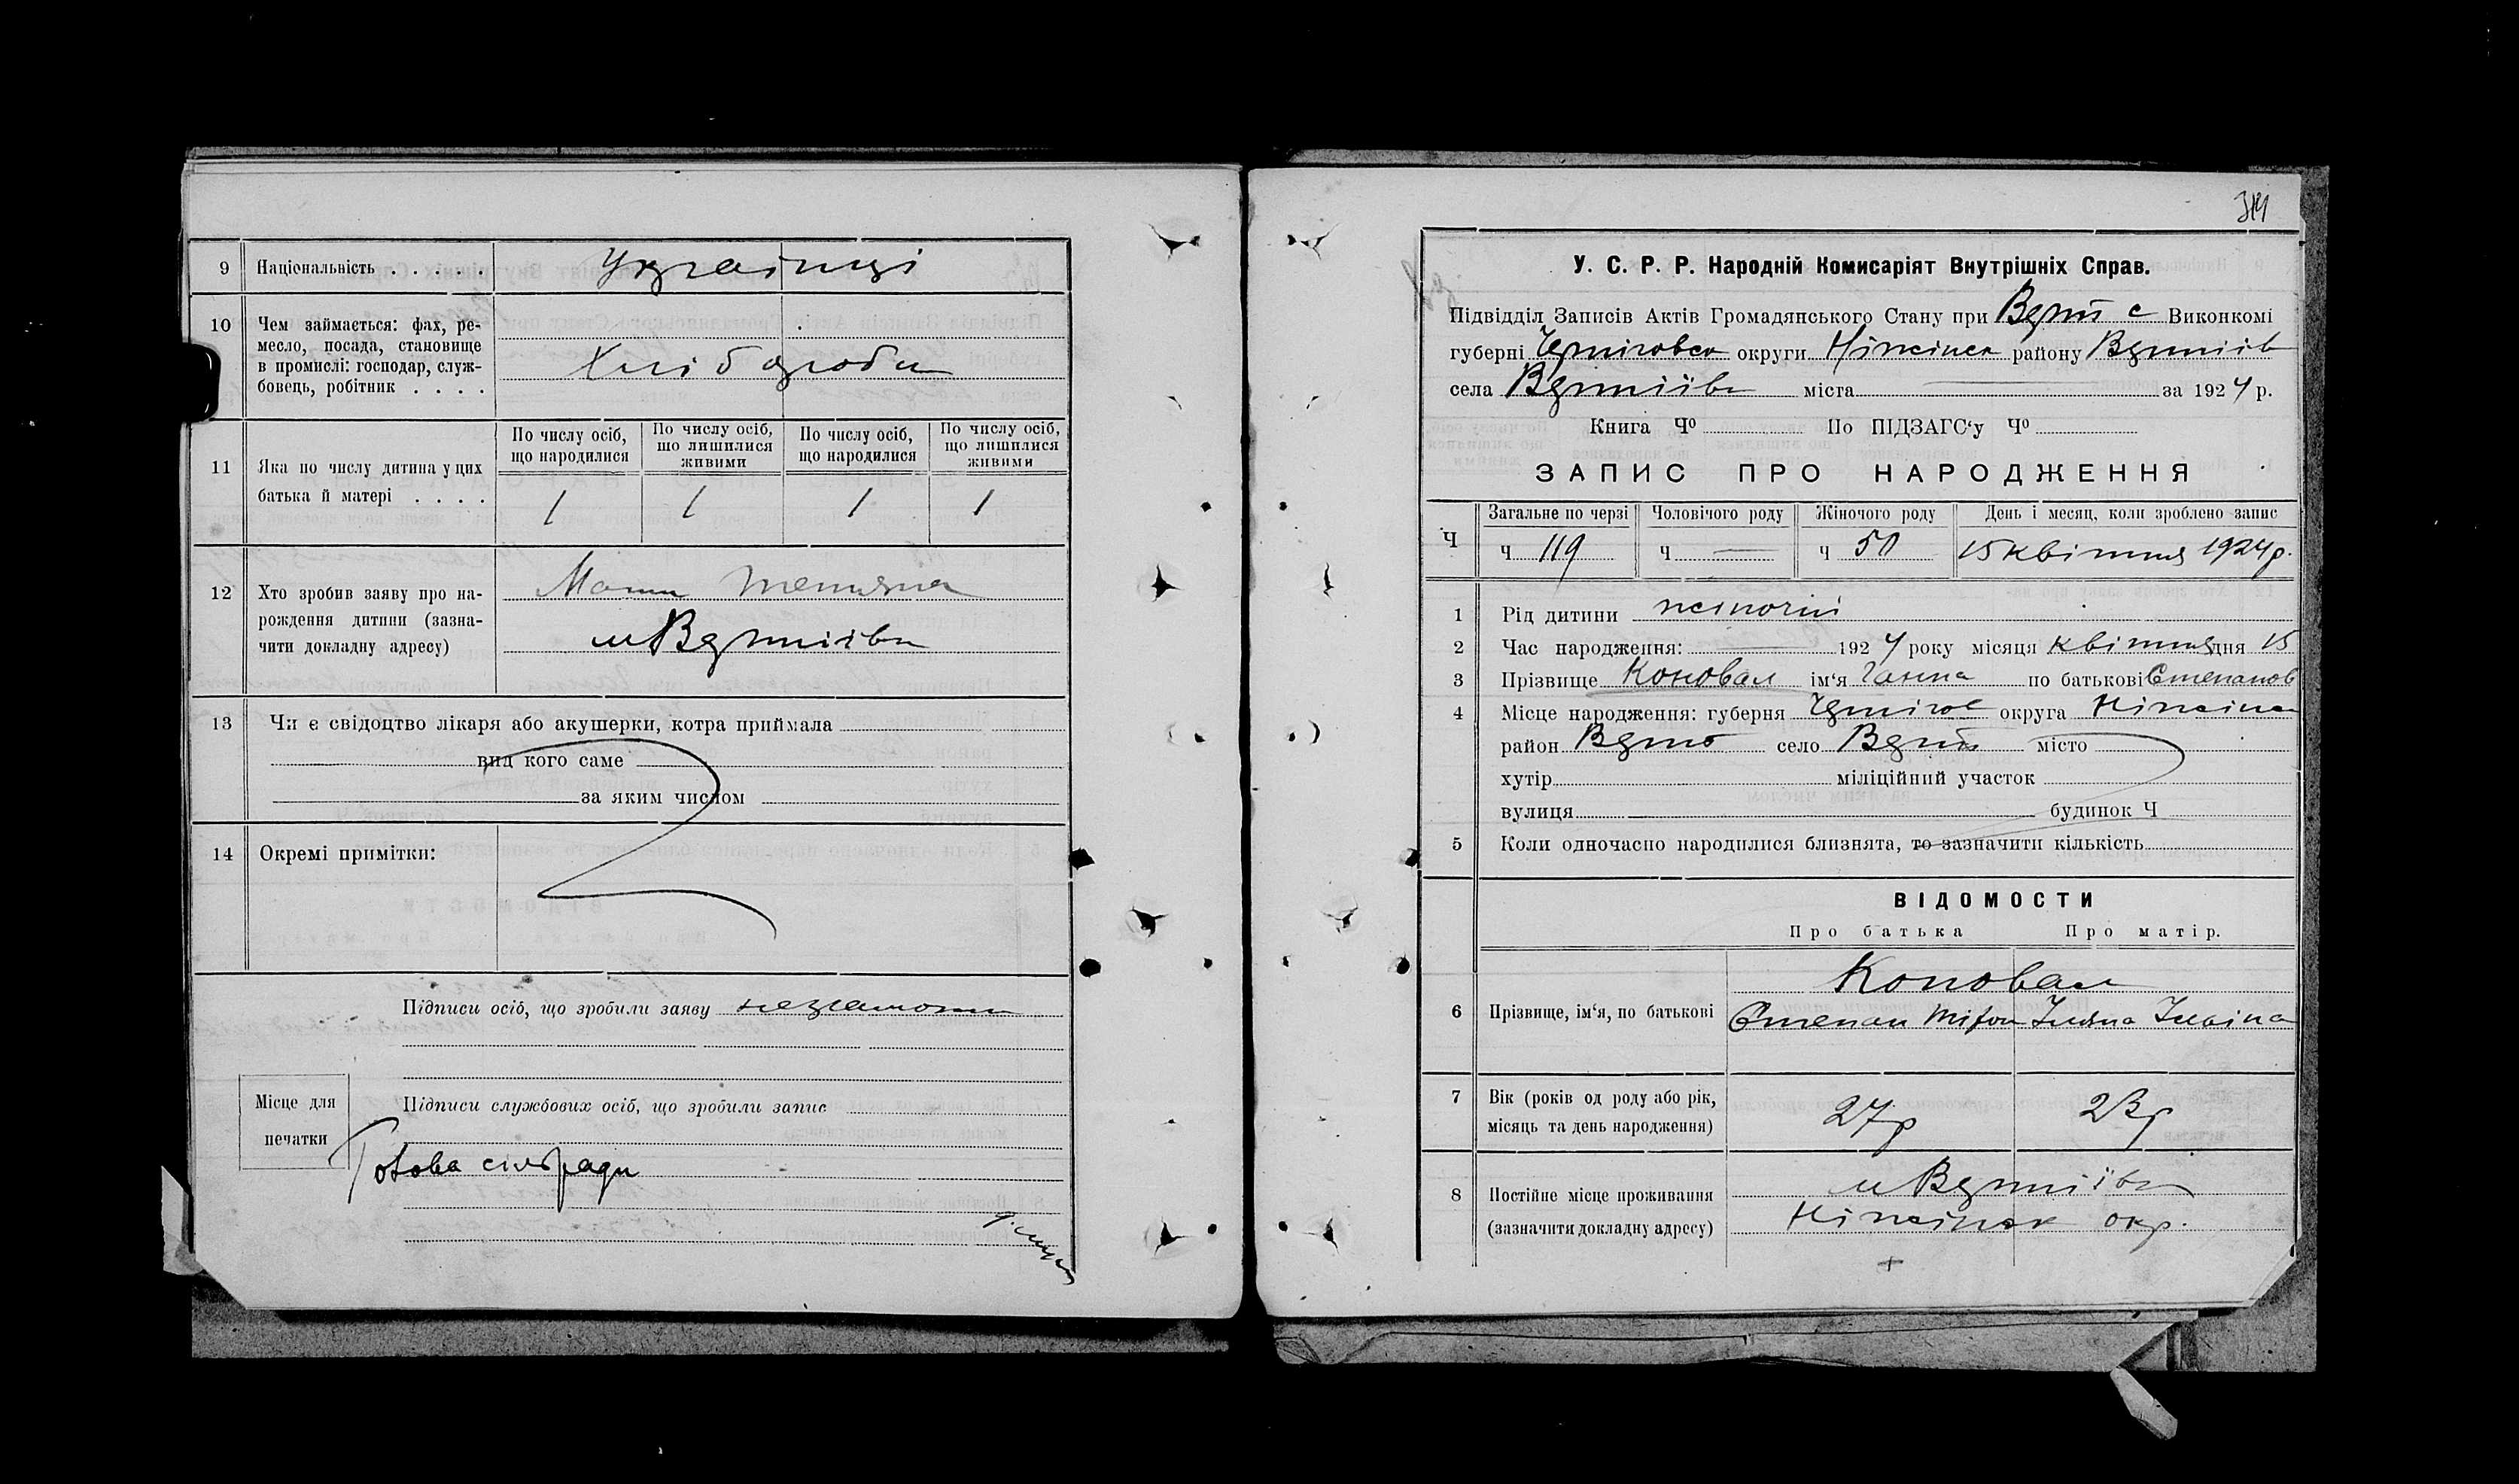 9 Національність . . . . . Українці
10 Чем займається: фах, ре-
месло, посада, становище
в промислі: господар, служ-
бовець, робітник . . . .
Хлібороби
11 Яка по числу дитина у цих
батька й матері . . . .
По числу осіб, що народилися
По числу осіб, що лишилися живими
По числу осіб, що народилися
По числу осіб, що лишилися живими
1 1 1 1
12 Хто зробив заяву про на-
рождення дитини (зазна-
чити докладну адресу)
13 Чи є свідоцтво лікаря або акушерки, котра приймала
вид кого саме
за яким числом
14 Окремі примітки:
Підписи осіб, що зробили заяву
Місце для
печатки
Підписи службових осіб, що зробили запис
Голова сільради
314
У. С. Р. Р. Народній Комисаріят Внутрішніх Справ.
Підвідділ Записів Актів Громадянського Стану при Виконкомі
губерні округи району
села міста за 1924 р.
Книга Ч⁰ По ПІДЗАГС‘у Ч⁰
ЗАПИС ПРО НАРОДЖЕННЯ
Ч
Загальне по черзі
Чоловічого роду
Жіночого роду
День і месяц, коли зроблено запис
ч 119 ч — ч 50 15 квітня 1924 р.
1 Рід дитини жіночій
2 Час народження: 1924 року місяця квітня дня 15
3 Прізвище Коновал ім‘я Ганна по батькові Степанов
4 Місце народження: губерня Чернігов округа Ніжінск
район село місто
хутір міліційний участок
вулиця будинок Ч
5 Коли одночасно народилися близнята, то зазначити кількість
ВІДОМОСТИ
Про батька Про матір.
6 Прізвище, ім‘я, по батькові
Коновал
Степан
7 Вік (років од роду або рік,
місяць та день народження)
27р 23р
8 Постійне місце проживання
(зазначити докладну адресу)
окр.